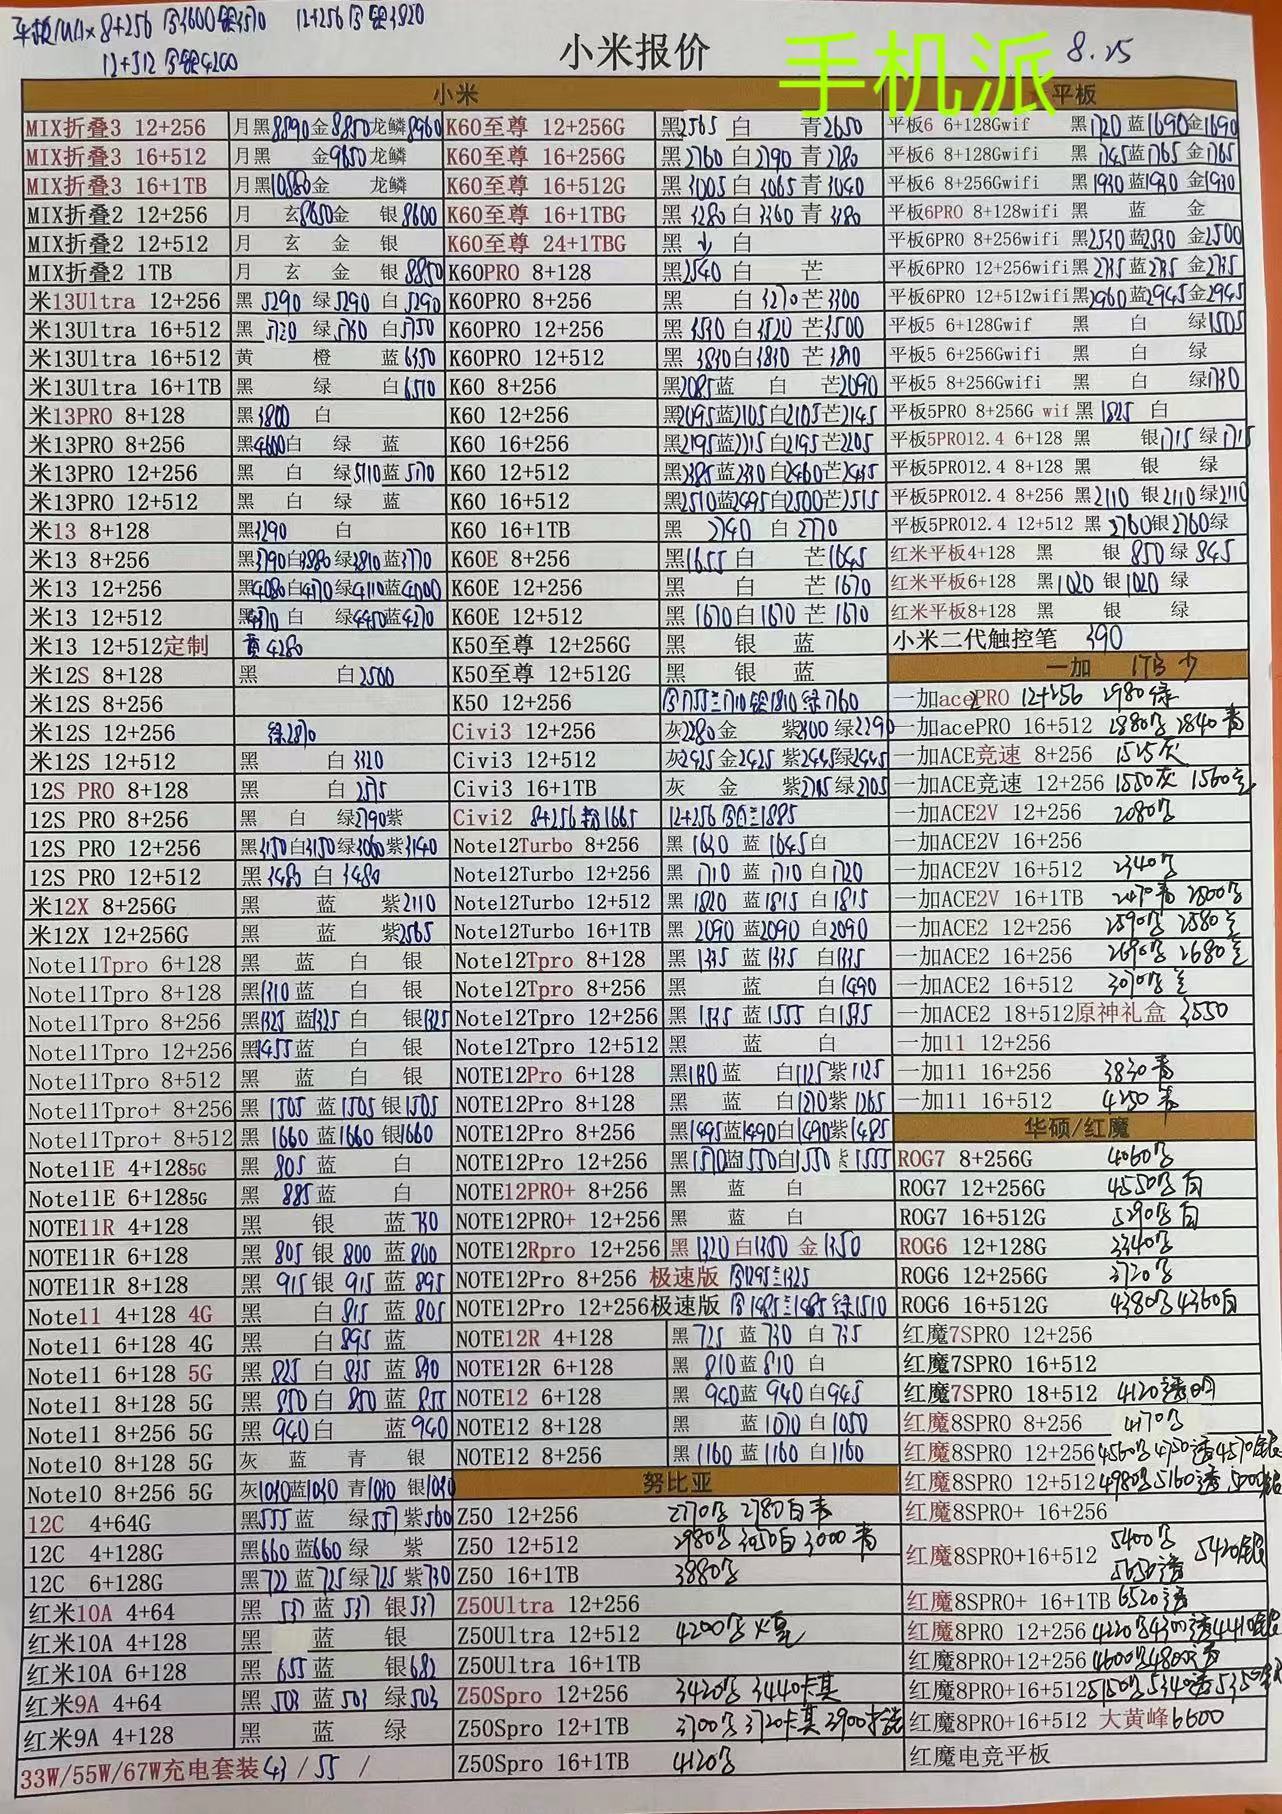 平板MAX 8+256 黑3600银3570 12+256黑银3820
12+512黑银4200
小米报价
手机派
8.25
小米
MIX折叠3 12+256 月黑8890金8850龙鳞8960
MIX折叠3 16+512 月黑 金9650龙鳞
MIX折叠3 16+1TB 月黑10880金 龙鳞
MIX折叠2 12+256 月 玄8650金 银8600
MIX折叠2 12+512 月 玄 金 银
MIX折叠2 1TB 月 玄 金 银8850
米13Ultra 12+256 黑5290 绿5290 白5290
米13Ultra 16+512 黑5720 绿5730 白5750
米13Ultra 16+512 黄 橙 蓝6350
米13Ultra 16+1TB 黑 绿 白6510
米13PRO 8+128 黑3800 白
米13PRO 8+256 黑4600白 绿 蓝
米13PRO 12+256 黑 白 绿5110蓝5170
米13PRO 12+512 黑 白 绿 蓝
米13 8+128 黑3290 白
米13 8+256 黑3790白3880绿3810蓝3770
米13 12+256 黑4080白4170绿4110蓝4000
米13 12+512 黑4370白 绿4450蓝4270
米13 12+512定制 黄4280
米12S 8+128 黑 白2500
米12S 8+256
米12S 12+256 绿2870
米12S 12+512 黑 白3120
12S PRO 8+128 黑 白2575
12S PRO 8+256 黑 白 绿2790紫
12S PRO 12+256 黑3150白3150绿3060紫3140
12S PRO 12+512 黑3480 白3480
米12X 8+256G 黑 蓝 紫2110
米12X 12+256G 黑 蓝 紫2565
Note11Tpro 6+128 黑 蓝 白 银
Note11Tpro 8+128 黑1310蓝 白 银
Note11Tpro 8+256 黑1325蓝1325白 银1325
Note11Tpro 12+256 黑1455蓝 白 银
Note11Tpro 8+512 黑 蓝 白 银
Note11Tpro+ 8+256 黑1505 蓝1505 银1505
Note11Tpro+ 8+512 黑1660 蓝1660 银1660
Note11E 4+1285G 黑 805 蓝 白
Note11E 6+1285G 黑 885蓝 白
NOTE11R 4+128 黑 银 蓝730
NOTE11R 6+128 黑 805 银 800 蓝 800
NOTE11R 8+128 黑 915银 915 蓝 895
Note11 4+128 4G 黑 白815 蓝 805
Note11 6+128 4G 黑 白895 蓝
Note11 6+128 5G 黑825 白835 蓝 840
Note11 8+128 5G 黑850白 850 蓝 855
Note11 8+256 5G 黑940白 蓝940
Note10 8+128 5G 灰 蓝 青 银
Note10 8+256 5G 灰1030蓝1030 青1030 银1030
12C 4+64G 黑555蓝 绿557紫560
12C 4+128G 黑660蓝660绿 紫
12C 6+128G 黑722蓝725绿725紫730
红米10A 4+64 黑 537 蓝 537 银537
红米10A 4+128 黑 蓝 银
红米10A 6+128 黑 655蓝 银682
红米9A 4+64 黑 503 蓝503 绿503
红米9A 4+128 黑 蓝 绿
33W/55W/67W充电套装43/55 /
K60至尊 12+256G 黑2565 白 青2650
K60至尊 16+256G 黑2760白2790青2780
K60至尊 16+512G 黑3005白3065青3040
K60至尊 16+1TBG 黑3280白3360青3180
K60至尊 24+1TBG 黑 少 白
K60PRO 8+128 黑2540 白 芒
K60PRO 8+256 黑 白3270芒3300
K60PRO 12+256 黑3530白3520芒3500
K60PRO 12+512 黑3830白3830芒3810
K60 8+256 黑2085蓝 白 芒2090
K60 12+256 黑2095蓝2105白2105芒2145
K60 16+256 黑2195蓝2215白2195芒2205
K60 12+512 黑2385蓝2330白2460芒2435
K60 16+512 黑2510蓝2495白2500芒2515
K60 16+1TB 黑 2740 白2770
K60E 8+256 黑1655 白 芒1645
K60E 12+256 黑 白 芒1670
K60E 12+512 黑1670白1670芒1670
K50至尊 12+256G 黑 银 蓝
K50至尊 12+512G 黑 银 蓝
K50 12+256 黑1755兰1710银1810绿1760
Civi3 12+256 灰2280金 紫2300绿2290
Civi3 12+512 灰2425金2425紫2445绿2445
Civi3 16+1TB 灰 金 紫2705绿2705
Civi2 8+256 粉1665 12+256 黑白兰1885
Note12Turbo 8+256 黑1630 蓝1645白
Note12Turbo 12+256 黑1710 蓝1710白1720
Note12Turbo 12+512 黑1820 蓝1815 白1815
Note12Turbo 16+1TB 黑2090 蓝2090 白2090
Note12Tpro 8+128 黑1335 蓝1335 白1335
Note12Tpro 8+256 黑 蓝 白1490
Note12Tpro 12+256 黑1535 蓝1555 白1575
Note12Tpro 12+512 黑 蓝 白
NOTE12Pro 6+128 黑1130蓝 白1125紫1125
NOTE12Pro 8+128 黑 蓝 白1270紫1265
NOTE12Pro 8+256 黑1495蓝1490白1490紫1485
NOTE12Pro 12+256 黑1570蓝1550白1550紫1555
NOTE12PRO+ 8+256 黑 蓝 白
NOTE12PRO+ 12+256 黑 蓝 白
NOTE12Rpro 12+256 黑1320白1350金1350
NOTE12Pro 8+256 极速版 黑1295兰1325
NOTE12Pro 12+256极速版 黑1485兰1485绿1510
NOTE12R 4+128 黑725 蓝730 白735
NOTE12R 6+128 黑 810蓝810 白
NOTE12 6+128 黑 940蓝940白945
NOTE12 8+128 黑 蓝1070白1050
NOTE12 8+256 黑1160蓝1160白1160
努比亚
Z50 12+256 2770黑 2780白青
Z50 12+512 2980黑3050白3000青
Z50 16+1TB 3880黑
Z50Ultra 12+256
Z50Ultra 12+512 4200黑
Z50Ultra 16+1TB
Z50Spro 12+256 3420黑 3440卡其
Z50Spro 12+1TB 3700黑3720卡其3900
Z50Spro 16+1TB 4120黑
平板
平板6 6+128Gwif 黑1720蓝1690金1690
平板6 8+128Gwifi 黑1745蓝1765金1765
平板6 8+256Gwifi 黑1930蓝1930金1930
平板6PRO 8+128wifi 黑 蓝 金
平板6PRO 8+256wifi 黑2530蓝2530金2500
平板6PRO 12+256wifi黑2735蓝2735金2735
平板6PRO 12+512wifi黑2960蓝2945金2945
平板5 6+128Gwif 黑 白 绿1505
平板5 6+256Gwifi 黑 白 绿
平板5 8+256Gwifi 黑 白 绿1730
平板5PRO 8+256G wif 黑1825 白
平板5PRO12.4 6+128 黑 银1715绿1715
平板5PRO12.4 8+128 黑 银 绿
平板5PRO12.4 8+256 黑2110 银2110绿2110
平板5PRO12.4 12+512 黑2760银2760绿
红米平板4+128 黑 银 850绿 845
红米平板6+128 黑1020 银1020 绿
红米平板8+128 黑 银 绿
小米二代触控笔 390
一加 1TB 少
一加ace2PRO 12+256 2980绿
一加acePRO 16+512 2880黑 2840青
一加ACE竞速 8+256 1525灰
一加ACE竞速 12+256 1550灰 1560兰
一加ACE2V 12+256 2080黑
一加ACE2V 16+256
一加ACE2V 16+512 2340黑
一加ACE2V 16+1TB 2470青 2800黑
一加ACE2 12+256 2590黑 2580兰
一加ACE2 16+256 2690黑 2680兰
一加ACE2 16+512 3070黑兰
一加ACE2 18+512原神礼盒 3550
一加11 12+256
一加11 16+256 3830青
一加11 16+512 4250青
华硕/红魔
ROG7 8+256G 4060黑
ROG7 12+256G 4550黑白
ROG7 16+512G 5290黑白
ROG6 12+128G 3340黑
ROG6 12+256G 3720黑
ROG6 16+512G 4380黑4360白
红魔7SPRO 12+256
红魔7SPRO 16+512
红魔7SPRO 18+512 4120透明
红魔8SPRO 8+256 4170黑
红魔8SPRO 12+256 4560黑4750透4570银
红魔8SPRO 12+512 4980黑5160透5000银
红魔8SPRO+ 16+256
红魔8SPRO+16+512 5400黑 5420银
5650透
红魔8SPRO+ 16+1TB 6520透
红魔8PRO 12+256 4220黑4300透4410银
红魔8PRO+12+256 4600黑4800透
红魔8PRO+16+512 5150黑5340透5350银
红魔8PRO+16+512 大黄蜂6600
红魔电竞平板